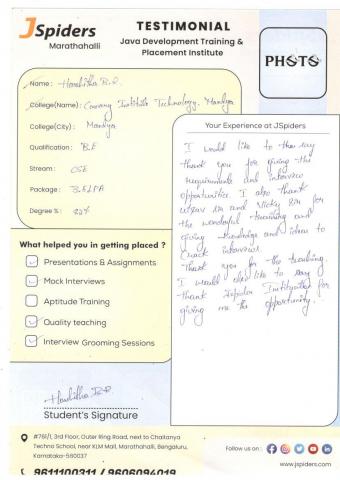 JSpiders
Marathahalli
TESTIMONIAL
Java Development Training &
Placement Institute
PHOTO
Name : Harshitha B.R.
College(Name) : Institute Technology, Mandya
College(City) : Mandya
Qualification : B.E
Stream : CSE
Package :
Degree % :
Your Experience at JSpiders
I would like to the say
thank you for giving the
requirements and interview
opportunities. I also thank
sir and Vicky Sir for
the wonderful training and
giving and ideas to
crack interview.
Thank you for the teaching.
I would also like to say
thank Jspider for
giving me the opportunity.
What helped you in getting placed ?
Presentations & Assignments
Mock Interviews
Aptitude Training
Quality teaching
Interview Grooming Sessions
Harshitha B.R.
Student's Signature
#761/1, 3rd Floor, Outer Ring Road, next to Chaitanya
Techno School, near KLM Mall, Marathahalli, Bengaluru,
Karnataka-560037
9611100311 / 9606094019
Follow us on :
www.jspiders.com